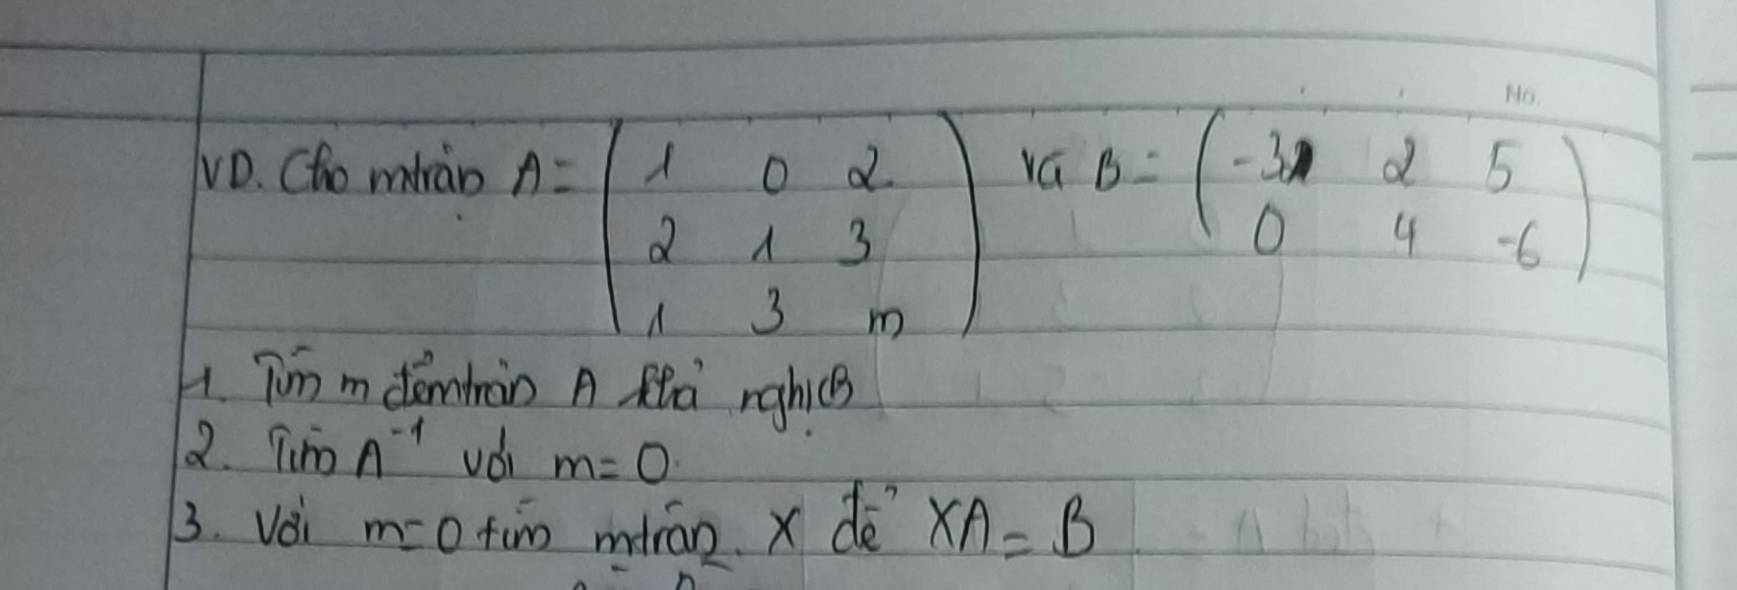 No.
VD. Cho mtrận A = ( 1 0 2 và B = ( -3 2 5
2 1 3 0 4 -6 )
1 3 m )
1. Tìm m để mtrận A khả nghịch
2. Tìm A⁻¹ với m = 0.
3. Với m = 0 tìm mtrận X để XA = B